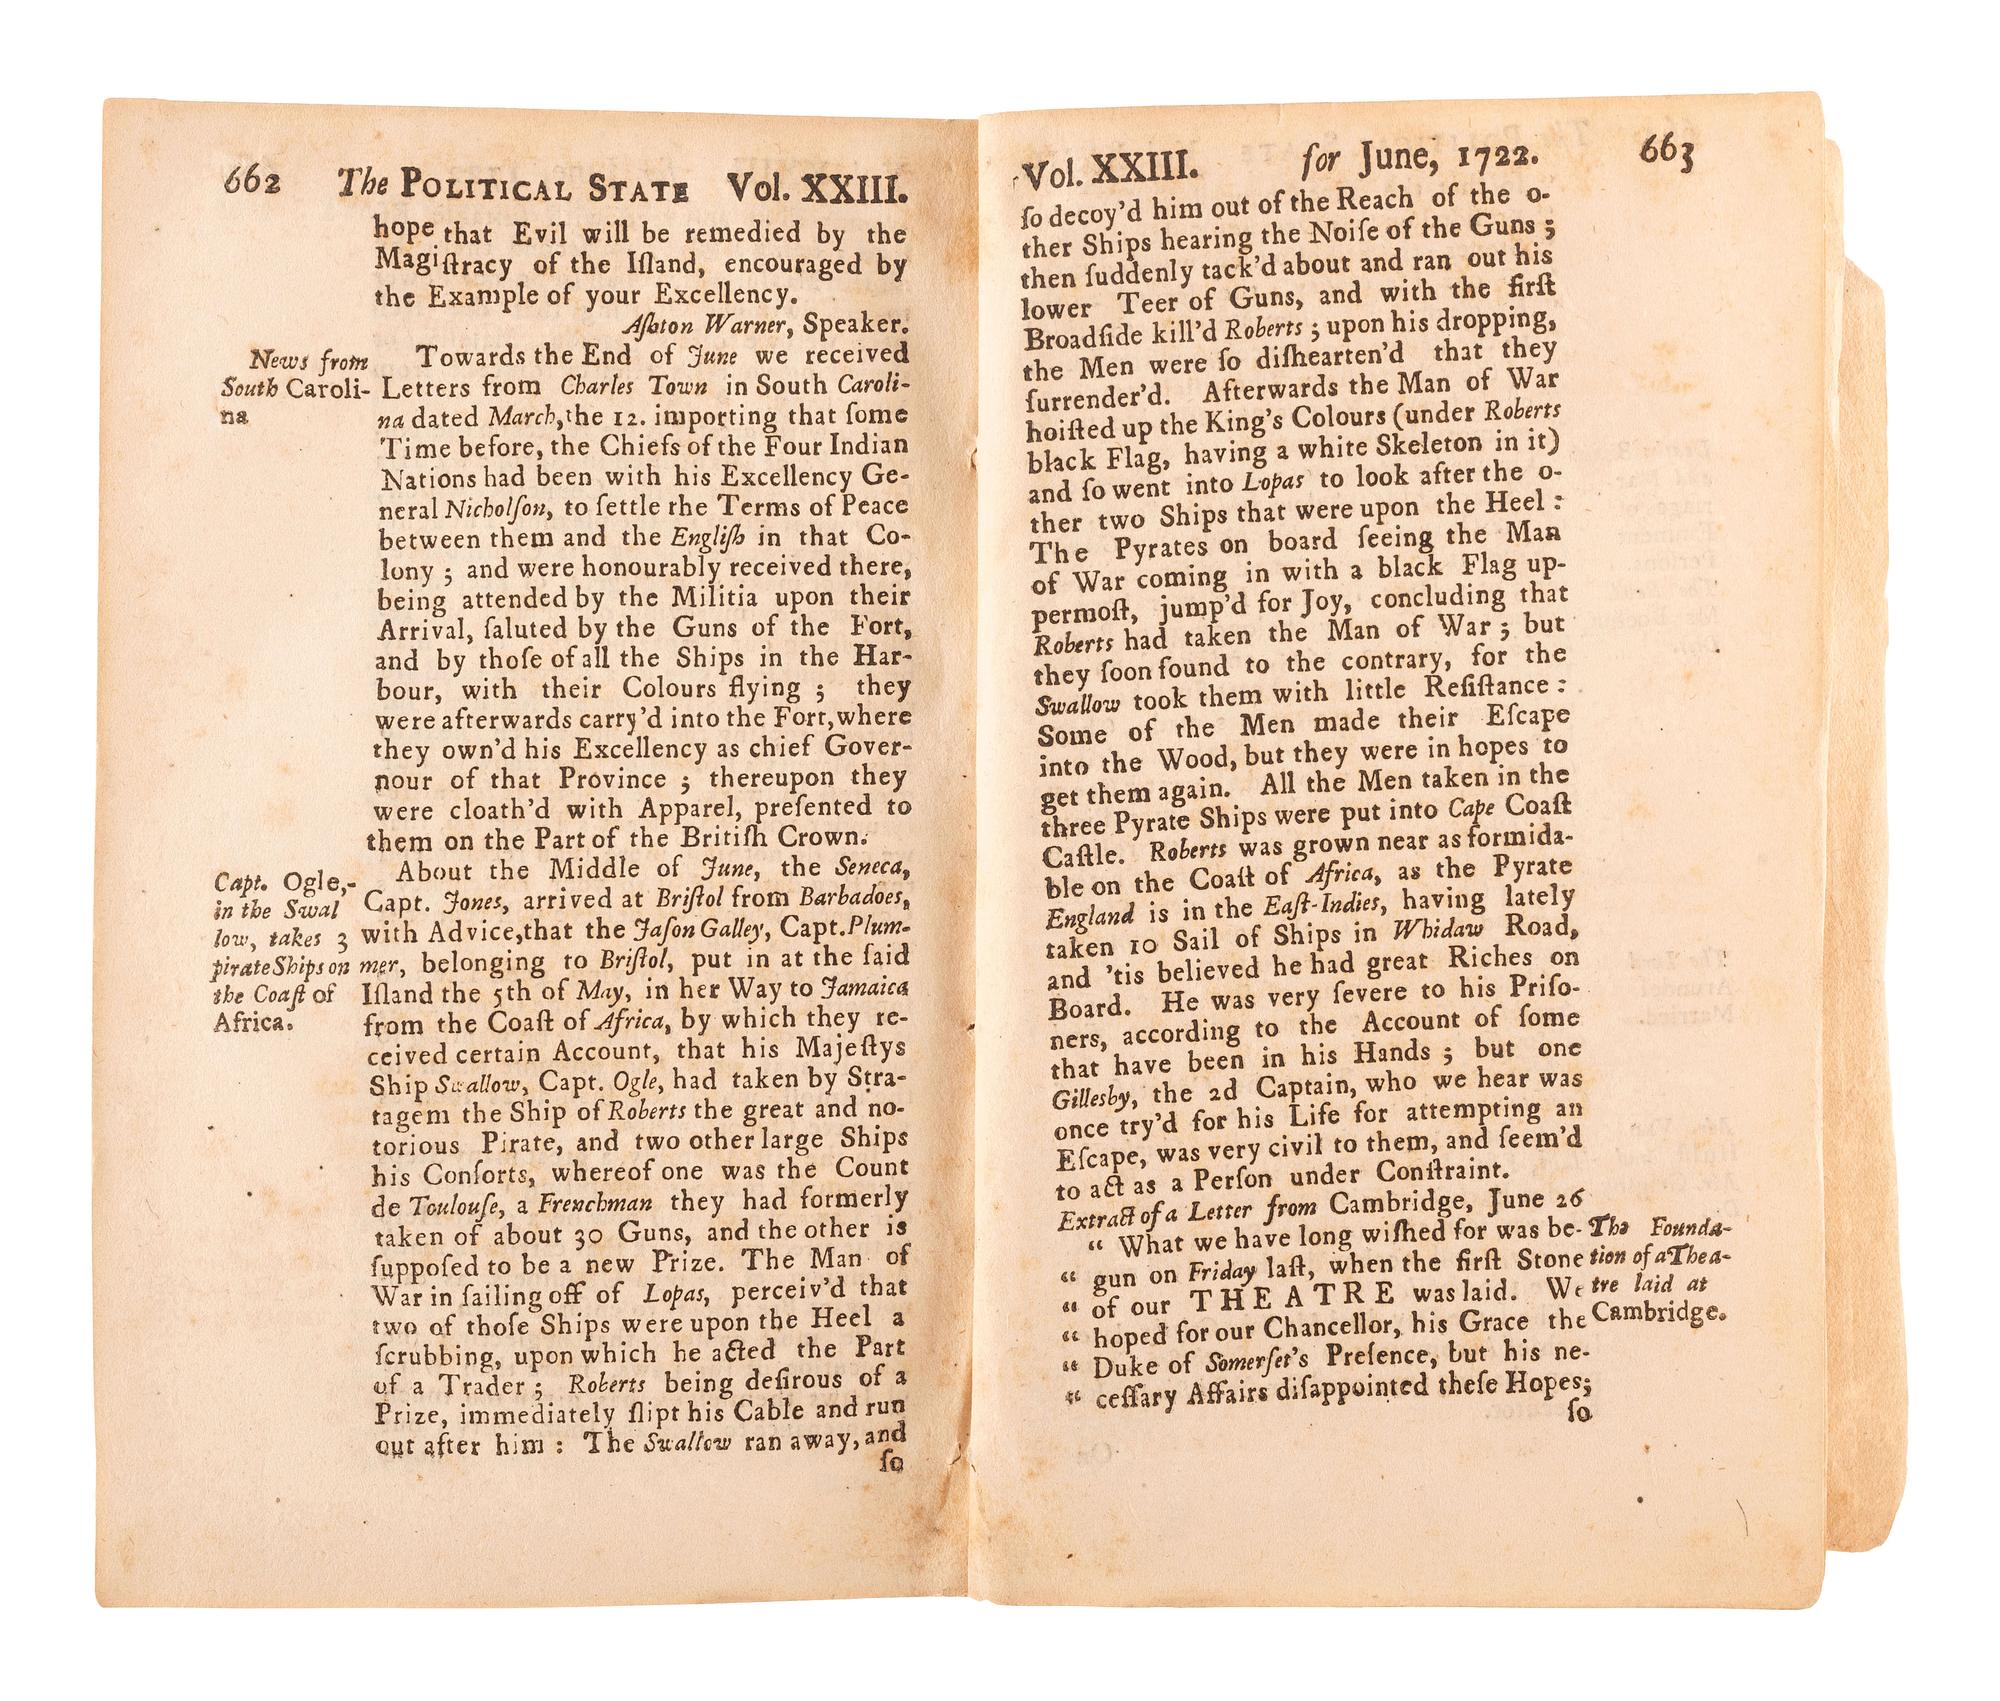 662 The POLITICAL STATE Vol. XXIII.
hope that Evil will be remedied by the
Magiſtracy of the Iſland, encouraged by
the Example of your Excellency.
Aſhton Warner, Speaker.
News from
South Caroli-
na
Towards the End of June we received
Letters from Charles Town in South Caroli-
na dated March, the 12. importing that ſome
Time before, the Chiefs of the Four Indian
Nations had been with his Excellency Ge-
neral Nicholſon, to ſettle rhe Terms of Peace
between them and the Engliſh in that Co-
lony ; and were honourably received there,
being attended by the Militia upon their
Arrival, ſaluted by the Guns of the Fort,
and by thoſe of all the Ships in the Har-
bour, with their Colours flying ; they
were afterwards carry'd into the Fort, where
they own'd his Excellency as chief Gover-
nour of that Province ; thereupon they
were cloath'd with Apparel, preſented to
them on the Part of the Britiſh Crown.
Capt. Ogle,-
in the Swal
low, takes 3
pirate Ships on
the Coaſt of
Africa.
About the Middle of June, the Seneca,
Capt. Jones, arrived at Briſtol from Barbadoes,
with Advice, that the Jaſon Galley, Capt. Plum-
mer, belonging to Briſtol, put in at the ſaid
Iſland the 5th of May, in her Way to Jamaica
from the Coaſt of Africa, by which they re-
ceived certain Account, that his Majeſtys
Ship Swallow, Capt. Ogle, had taken by Stra-
tagem the Ship of Roberts the great and no-
torious Pirate, and two other large Ships
his Conſorts, whereof one was the Count
de Toulouſe, a Frenchman they had formerly
taken of about 30 Guns, and the other is
ſuppoſed to be a new Prize. The Man of
War in ſailing off of Lopas, perceiv'd that
two of thoſe Ships were upon the Heel a
ſcrubbing, upon which he acted the Part
of a Trader ; Roberts being deſirous of a
Prize, immediately ſlipt his Cable and run
out after him : The Swallow ran away, and
ſo
Vol. XXIII. for June, 1722. 663
ſo decoy'd him out of the Reach of the o-
ther Ships hearing the Noiſe of the Guns ;
then ſuddenly tack'd about and ran out his
lower Teer of Guns, and with the firſt
Broadſide kill'd Roberts ; upon his dropping,
the Men were ſo diſhearten'd that they
ſurrender'd. Afterwards the Man of War
hoiſted up the King's Colours (under Roberts
black Flag, having a white Skeleton in it)
and ſo went into Lopas to look after the o-
ther two Ships that were upon the Heel :
The Pyrates on board ſeeing the Man
of War coming in with a black Flag up-
permoſt, jump'd for Joy, concluding that
Roberts had taken the Man of War ; but
they ſoon found to the contrary, for the
Swallow took them with little Reſiſtance :
Some of the Men made their Eſcape
into the Wood, but they were in hopes to
get them again. All the Men taken in the
three Pyrate Ships were put into Cape Coaſt
Caſtle. Roberts was grown near as formida-
ble on the Coaſt of Africa, as the Pyrate
England is in the Eaſt-Indies, having lately
taken 10 Sail of Ships in Whidaw Road,
and 'tis believed he had great Riches on
Board. He was very ſevere to his Priſo-
ners, according to the Account of ſome
that have been in his Hands ; but one
Gilleſby, the 2d Captain, who we hear was
once try'd for his Life for attempting an
Eſcape, was very civil to them, and ſeem'd
to act as a Perſon under Conſtraint.
Extract of a Letter from Cambridge, June 26
“ What we have long wiſhed for was be-
“ gun on Friday laſt, when the firſt Stone
“ of our THEATRE was laid. We
“ hoped for our Chancellor, his Grace the
“ Duke of Somerſet's Preſence, but his ne-
“ ceſſary Affairs diſappointed theſe Hopes;
The Founda-
tion of a Thea-
tre laid at
Cambridge.
ſo